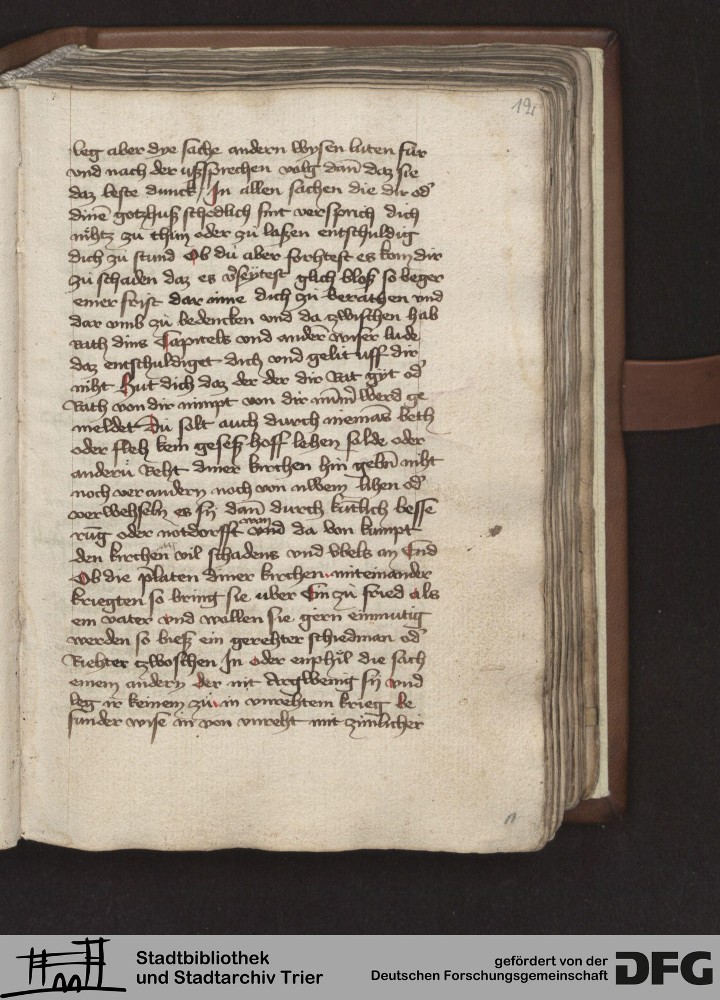 194
leg aber dye sache andern wysen luten fur
vnd nach der vßsprechen volg dañ daz sie
daz beste dunck / In allen sachen die dir od'
dinē gotzhuß schedlich sint versprich dich
nihtz zü thün oder zü laßen entschuldig
dich zü stund Ob dü aber forhtest es kom dir
zü schaden daz es glich bloß so beger
einer frist dar inne dich zü berathen vnd
dar vmb zü bedencken vnd da zwischen hab
Rath dins Capitels vnd ander wiser lude
daz entschuldiget dich vnd gelit vff dir
niht Hut dich daz der der dir Rat gyt od'
Rath von dir nimpt von dir werd ge
meldet Du solt auch durch niemās beth
oder fleh kein geseß hoff lehen selde oder
anderü Reht diner kirchen hin gebn̄ niht
noch verandern noch von nwem lihen od'
verwehseln es sy dañ durch kūtlich besse
rūg oder notdorfft vnd da von kumpt
den kirchen vil schadens vnd vbels an End
Ob die p̄laten diner kirchen miteinander
kriegten so bring sie vber Ein zü fried Als
ein vater vnd wollen sie gern einmütig
werden so hieß ein gerehter schiedman od'
Riehter zwoschen In oder enphil die sach
einem andern der nit Argwenig sy vnd
leg ir keinem zü in vnrehtem krieg be
sunder wise in von vnreht mit zimlicher
Stadtbibliothek
und Stadtarchiv Trier
gefördert von der
Deutschen Forschungsgemeinschaft
DFG